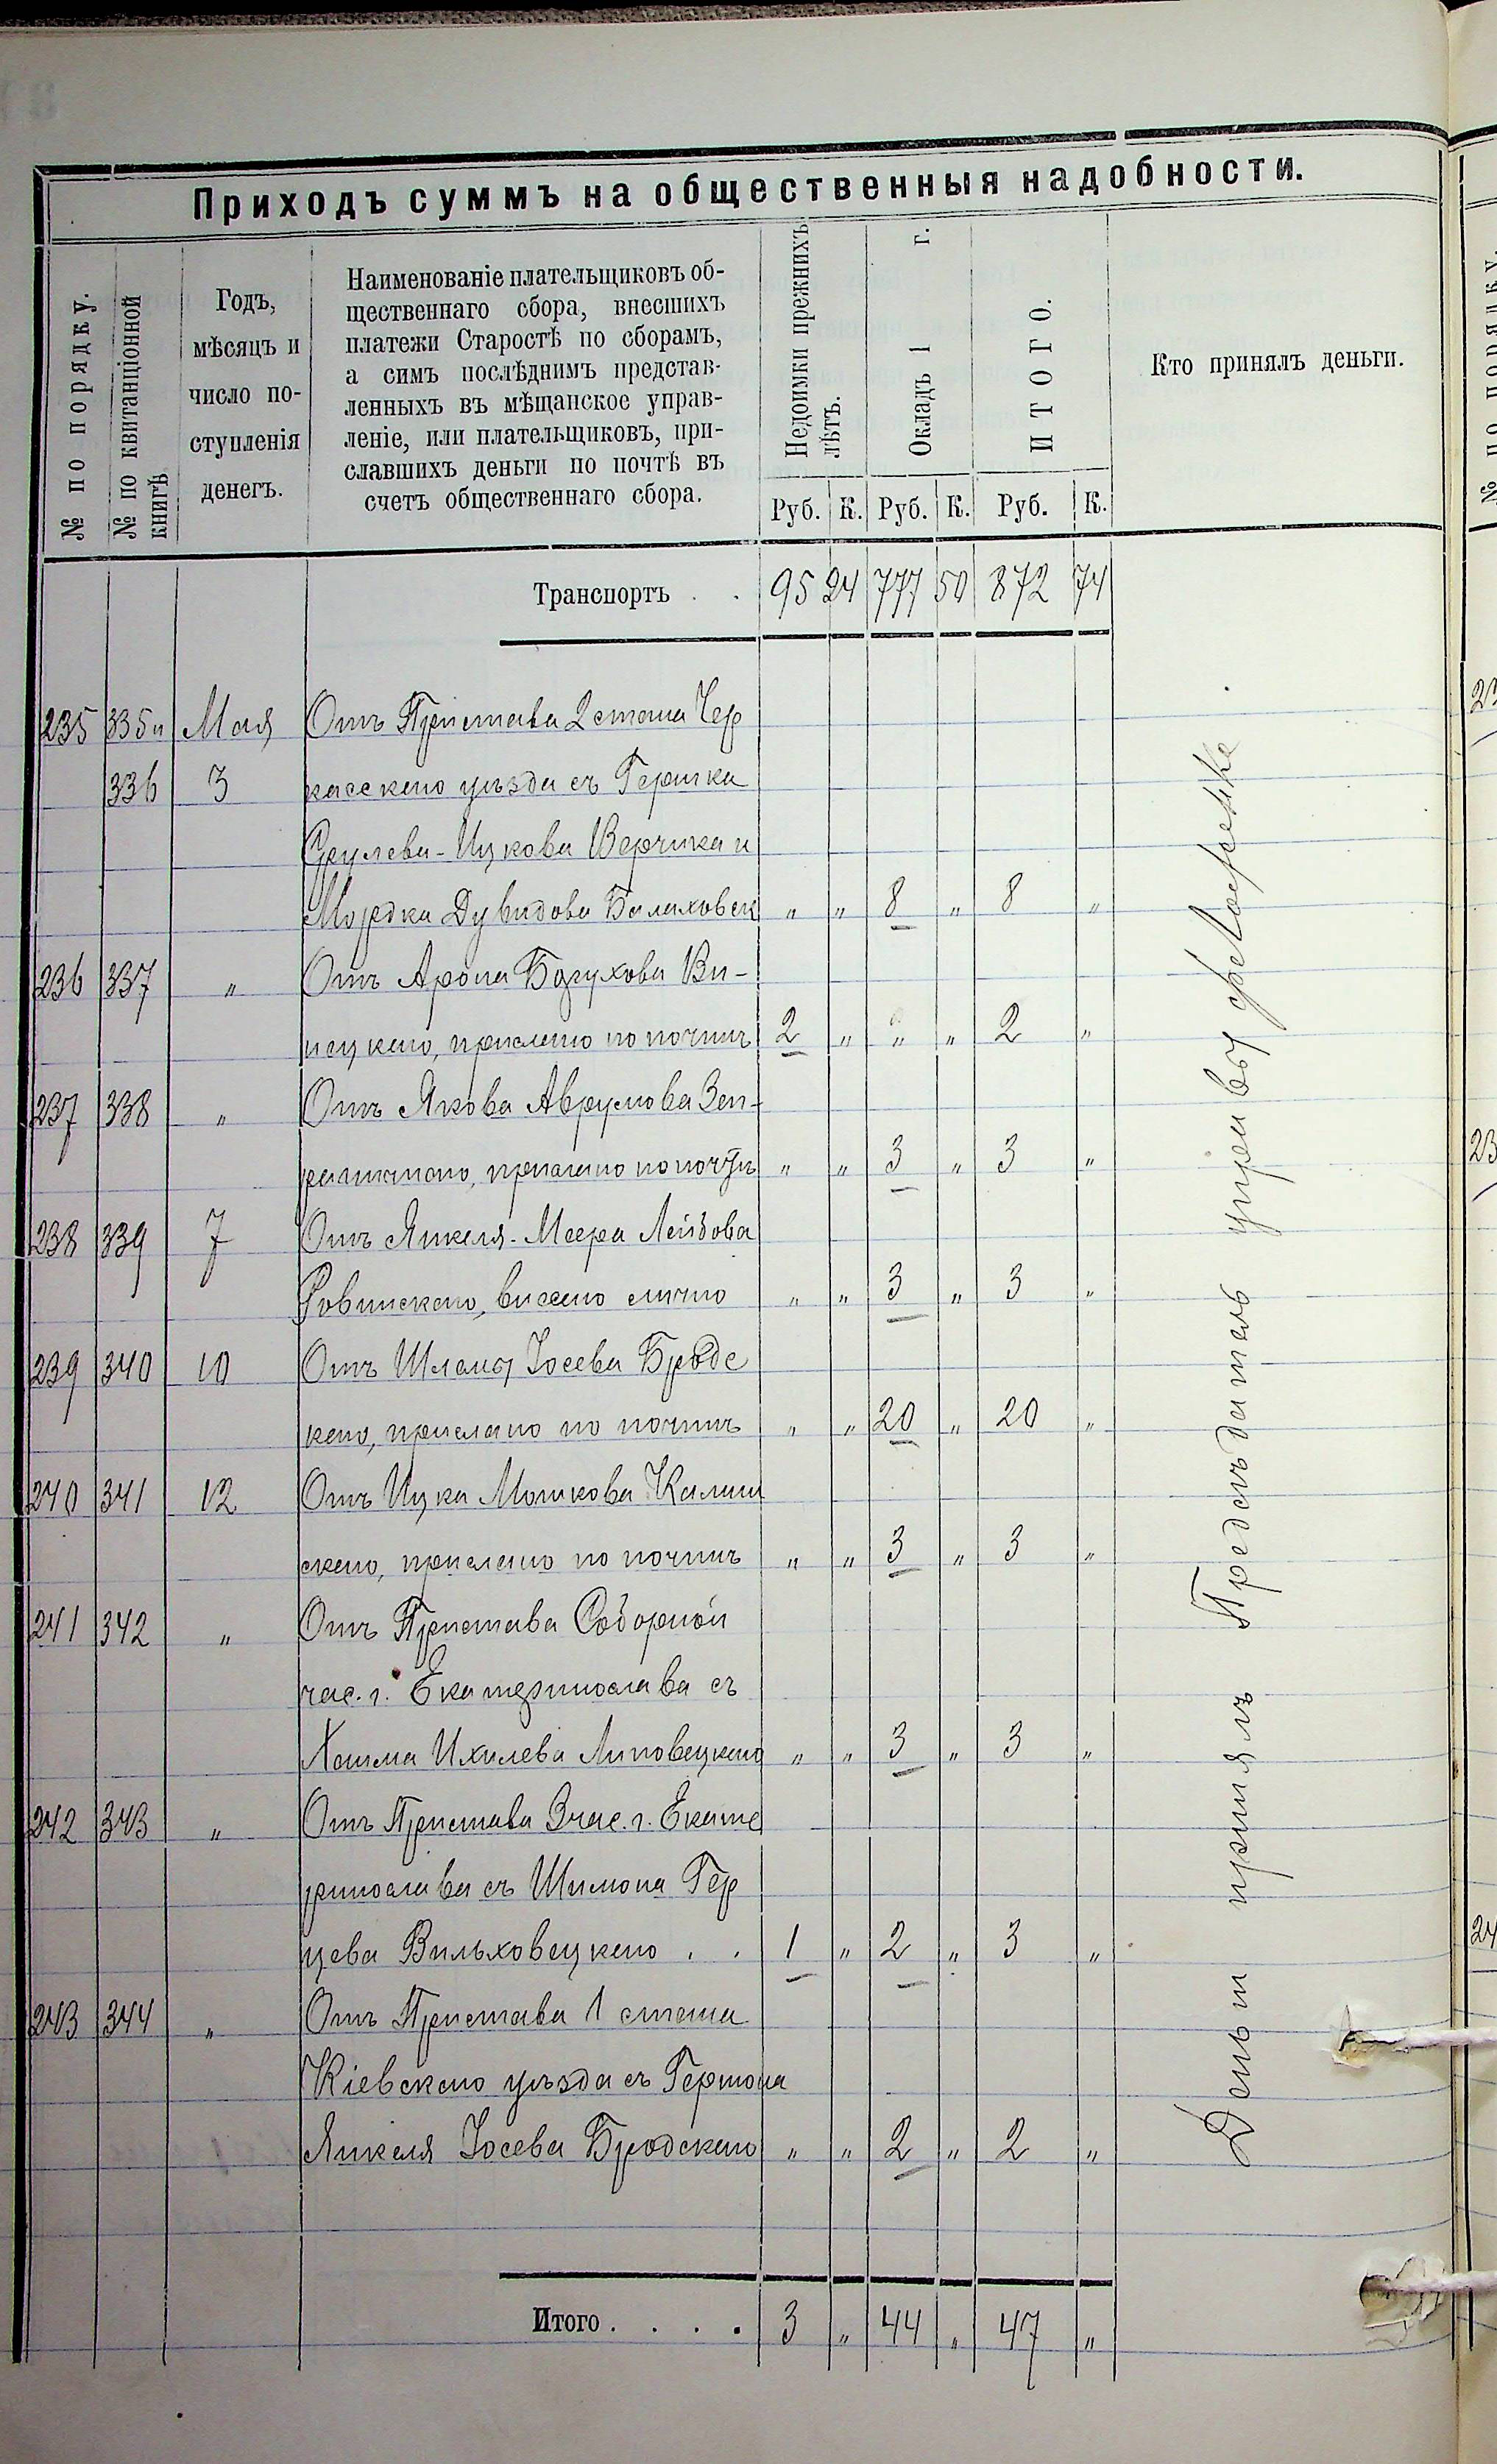 Приходъ суммъ на общественныя надобности.
№ по порядку.
№ по квитанціонной
книгѣ
Годъ,
мѣсяцъ и
число по-
ступленія
денегъ.
Наименованіе плательщиковъ об-
щественнаго сбора, внесшихъ
платежи Старостѣ по сборамъ,
а симъ послѣднимъ представ-
ленныхъ въ мѣщанское управ-
леніе, или плательщиковъ, при-
славшихъ деньги по почтѣ въ
счетъ общественнаго сбора.
Недоимки прежнихъ
лѣтъ.
Окладъ 1 г.
ИТОГО.
Кто принялъ деньги.
Руб. К. Руб. К. Руб. К.
Транспортъ . . 95 24 777 50 872 74
235 335 и Мая Отъ Пристава 2 стана Чер
336 3 касскаго уѣзда съ Гершка
Срулева-Ицкова Верчика и
Мордка Дувидова Балаховск " " 8 " 8 "
236 337 " Отъ Арона Ви-
ницкаго, прислано по почтѣ 2 " " " 2 "
237 338 " Отъ Якова Аврумова
прислано по почтѣ " " 3 " 3 "
238 339 7 Отъ Янкеля-Меера Лейбова
Ровинскаго, внесено лично " " 3 " 3 "
239 340 10 Отъ Шлемы Іосева Бродс
каго, прислано по почтѣ " " 20 " 20 "
240 341 12 Отъ Ицка Мошкова Калин
скаго, прислано по почтѣ " " 3 " 3 "
241 342 " Отъ Пристава Соборной
час. г. Екатеринослава съ
Хаима Ихилева Липовецкаго " " 3 " 3 "
242 343 " Отъ Пристава 3 час. г. Екате
ринослава съ Шимона Гер
цева Вильховецкаго . . 1 " 2 " 3 "
243 344 " Отъ Пристава 1 стана
Кіевскаго уѣзда съ Гершона
Янкеля Іосева Бродскаго " " 2 " 2 "
Итого . . . . 3 " 44 " 47 "
Деньги принялъ Предсѣдатель управы